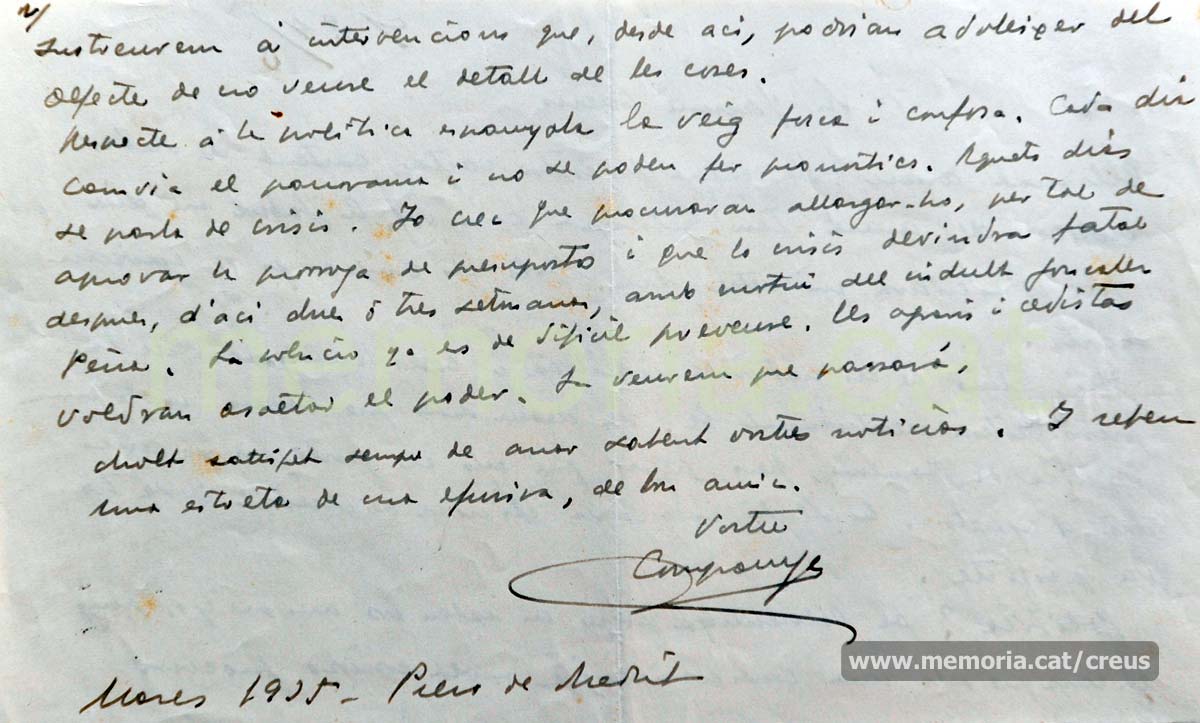 2/
sustreurem á intervencions que, desde aci, podrian adoleixer del
defecte de no veure el detall de les coses.
Respecte á la politica espanyola la veig fosca i confosa. Cada dia
camvia el panorama i no se poden fer pronostics. Aquets dias
se parla de crisis. Jo crec que procuraran allargar-ho, per tal de
aprovar la prorroga de presupostos i que la crisis devindra fatal
despres, d'aci dues ó tres setmanas, amb motiu del indult Gonzalez
Peña. La solucio ja es de dificil preveure. Els agraris i cedistas
voldran asaltar el poder. Ja veurem que passará,
Molt satisfet sempre de anar sabent vostres noticias. I rebeu
una estreta de ma efusiva, de bon amic.
Vostre
Companys
Mars 1935 - Preso de Madrit
memoria.cat
www.memoria.cat/creus